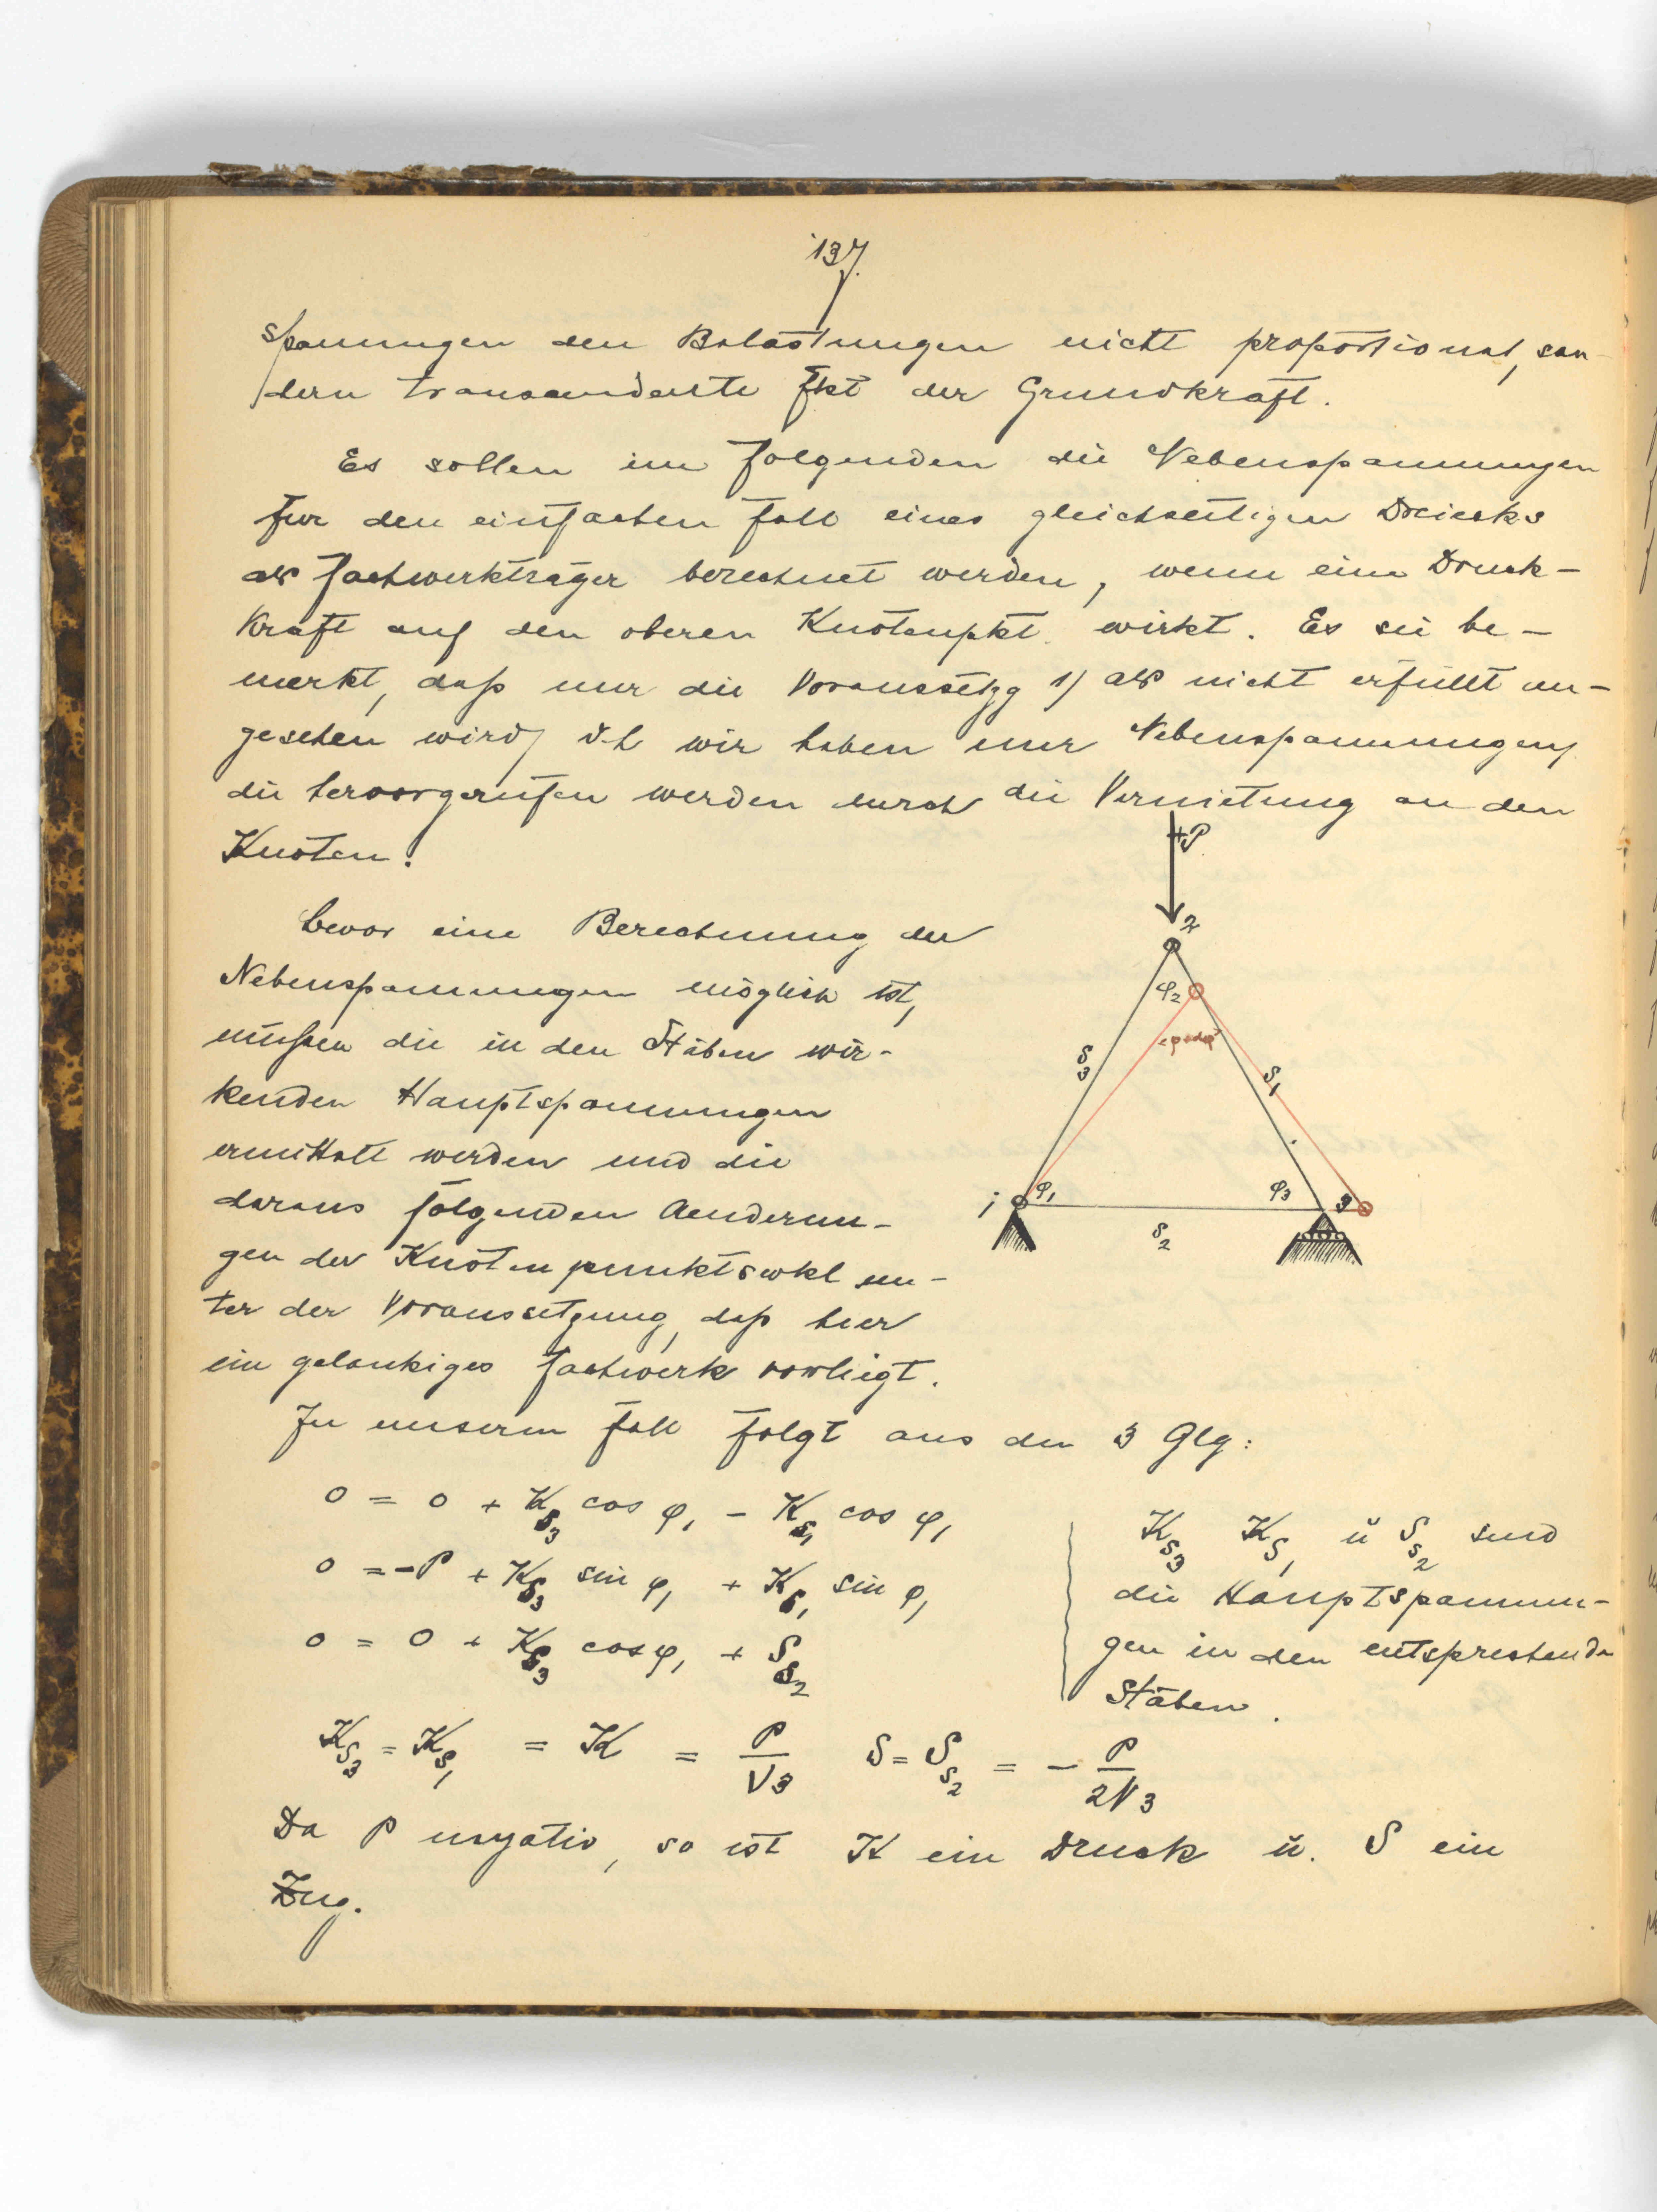 137.
spannungen den Belastungen nicht proportional, son-
dern transcendente Fkt der Grundkraft.
Es sollen im folgenden die Nebenspannungen
für den einfachen Fall eines gleichseitigen Dreiecks
als Fachwerkträger berechnet werden, wenn eine Druck-
kraft auf den oberen Knotenpkt. wirkt. Es sei be-
merkt, daß nur die Voraussetzg 1) als nicht erfüllt an-
gesehen wird, d.h wir haben nur Nebenspannungen,
die hervorgerufen werden durch die Vernietung an den
Knoten.
P
Bevor eine Berechnung der
Nebenspannungen möglich ist,
müssen die in den Stäben wir-
kenden Hauptspannungen
ermittelt werden und die
daraus folgenden Aenderun-
gen der Knotenpunktswkl un-
ter der Voraussetzung, daß hier
ein gelenkiges Fachwerk vorliegt.
2
φ₂
S₃
S₁
1
φ₁
φ₃
3
S₂
In unserem Fall folgt aus den 3 Glg:
0 = 0 + K_S₃ cos φ₁ - K_S₁ cos φ₁
0 = -P + K_S₃ sin φ₁ + K_S₁ sin φ₁
0 = 0 + K_S₃ cos φ₁ + S_S₂
K_S₃ K_S₁ ŭ S_S₂ sind
die Hauptspannun-
gen in den entsprechenden
Stäben.
K_S₃ = K_S₁ = K = P/√3 S = S_S₂ = - P/2√3
Da P negativ, so ist K ein Druck ŭ. S ein
Zug.